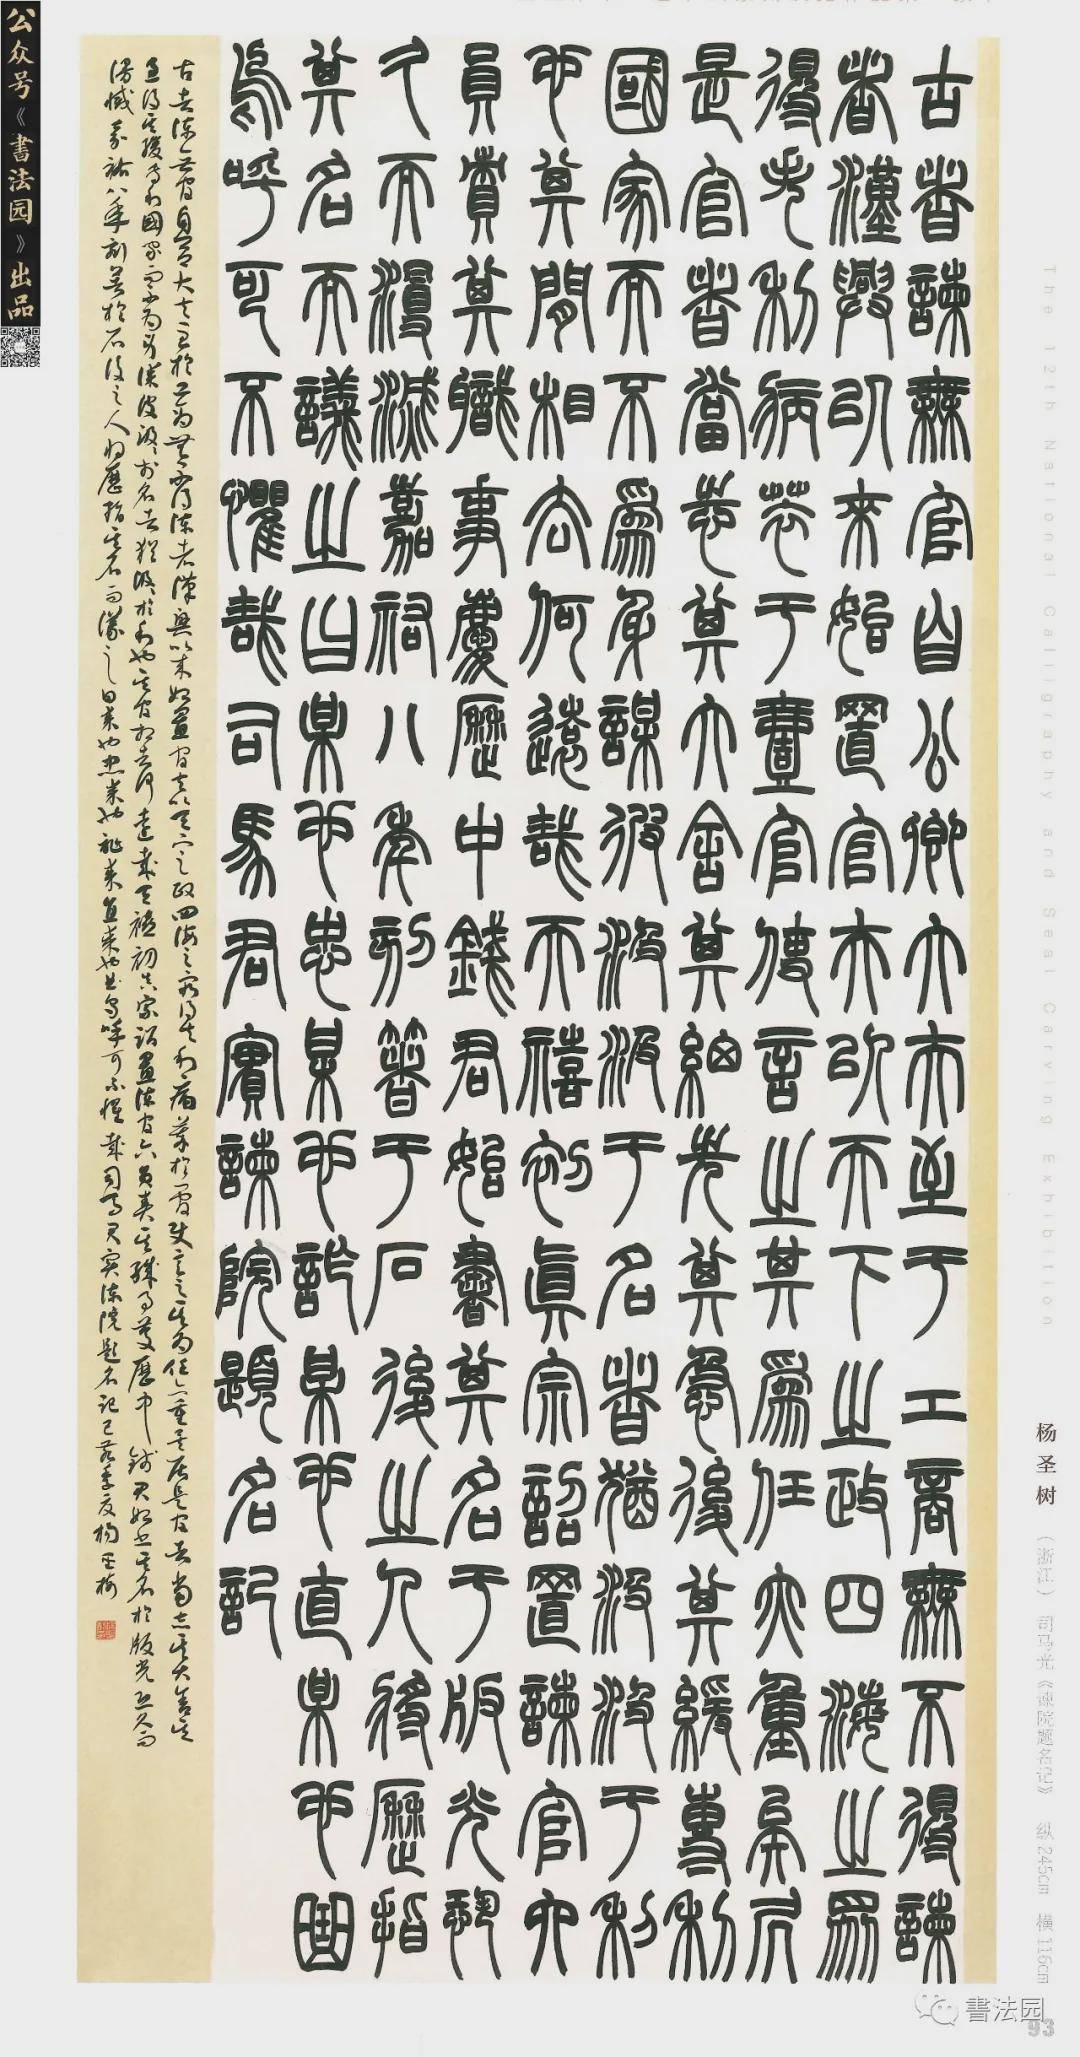 公众号《書法园》出品
古者諫無官自公卿大夫至于工商無不得諫
者漢興以來始置官夫以天下之政四海之眾
得失利病萃于壹官使言之其為任亦重矣居
是官者當志其大舍其細先其急後其緩專利
國家而不為身謀彼汲汲于名者猶汲汲于利
也其間相去何遠哉天禧初真宗詔置諫官六
員責其職事慶歷中錢君始書其名于版光恐
久而漫滅嘉祐八年刻著于石後之人將歷指
其名而議之曰某也忠某也詐某也直某也回
烏呼可不懼哉司馬君實諫院題名記
古者諫無官自公卿大夫至於工商無不得諫者漢興以來始置官夫以天下之政四海之眾得失利病萃於一官使言之其為任亦重矣居是官者當志其大舍其
急後其緩專利國家而不為身謀彼汲汲於名者猶汲汲於利也其間相去何遠哉天禧初真宗詔置諫官六員責其職事慶歷中錢君始書其名於版光恐久而
漫滅嘉祐八年刻著於石後之人將歷指其名而議之曰某也忠某也詐某也直某也回嗚呼可不懼哉司馬君實諫院題名記己亥季夏楊聖樹
The 12th National Calligraphy and Seal Carving Exhibition
杨圣树（浙江） 司马光《谏院题名记》 纵245cm 横116cm
書法园
93